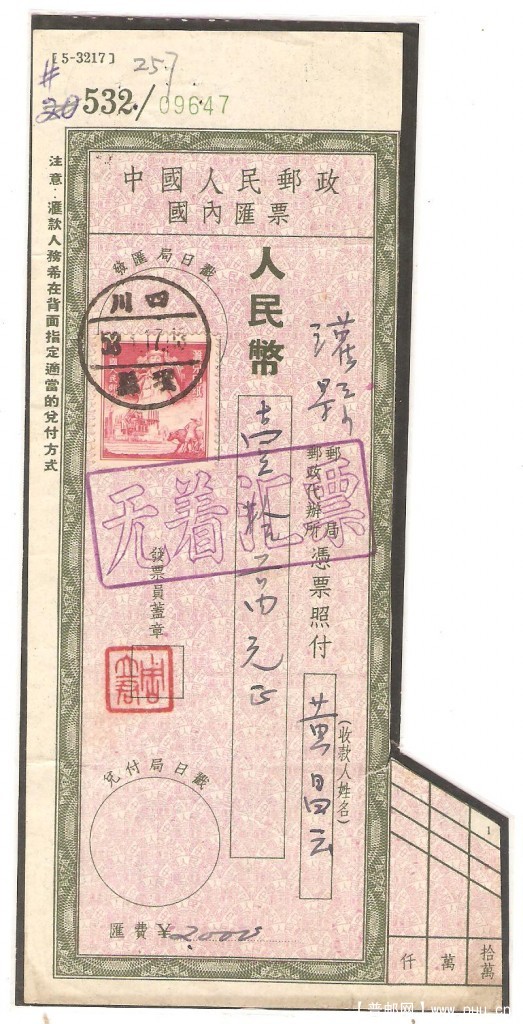 [5-3217]
257
#
532./09647
中國人民郵政
國內匯票
注意：滙款人務希在背面指定適當的兌付方式
發匯局日戳
人民幣
四川
17.13
郵局
郵政代辦所
憑票照付
黄昌云
(收款人姓名)
壹拾二萬元正
无着汇票
發票員蓋章
兌付局日戳
匯費
2000
1
仟
萬
拾萬
【普邮网】www.puu.cn